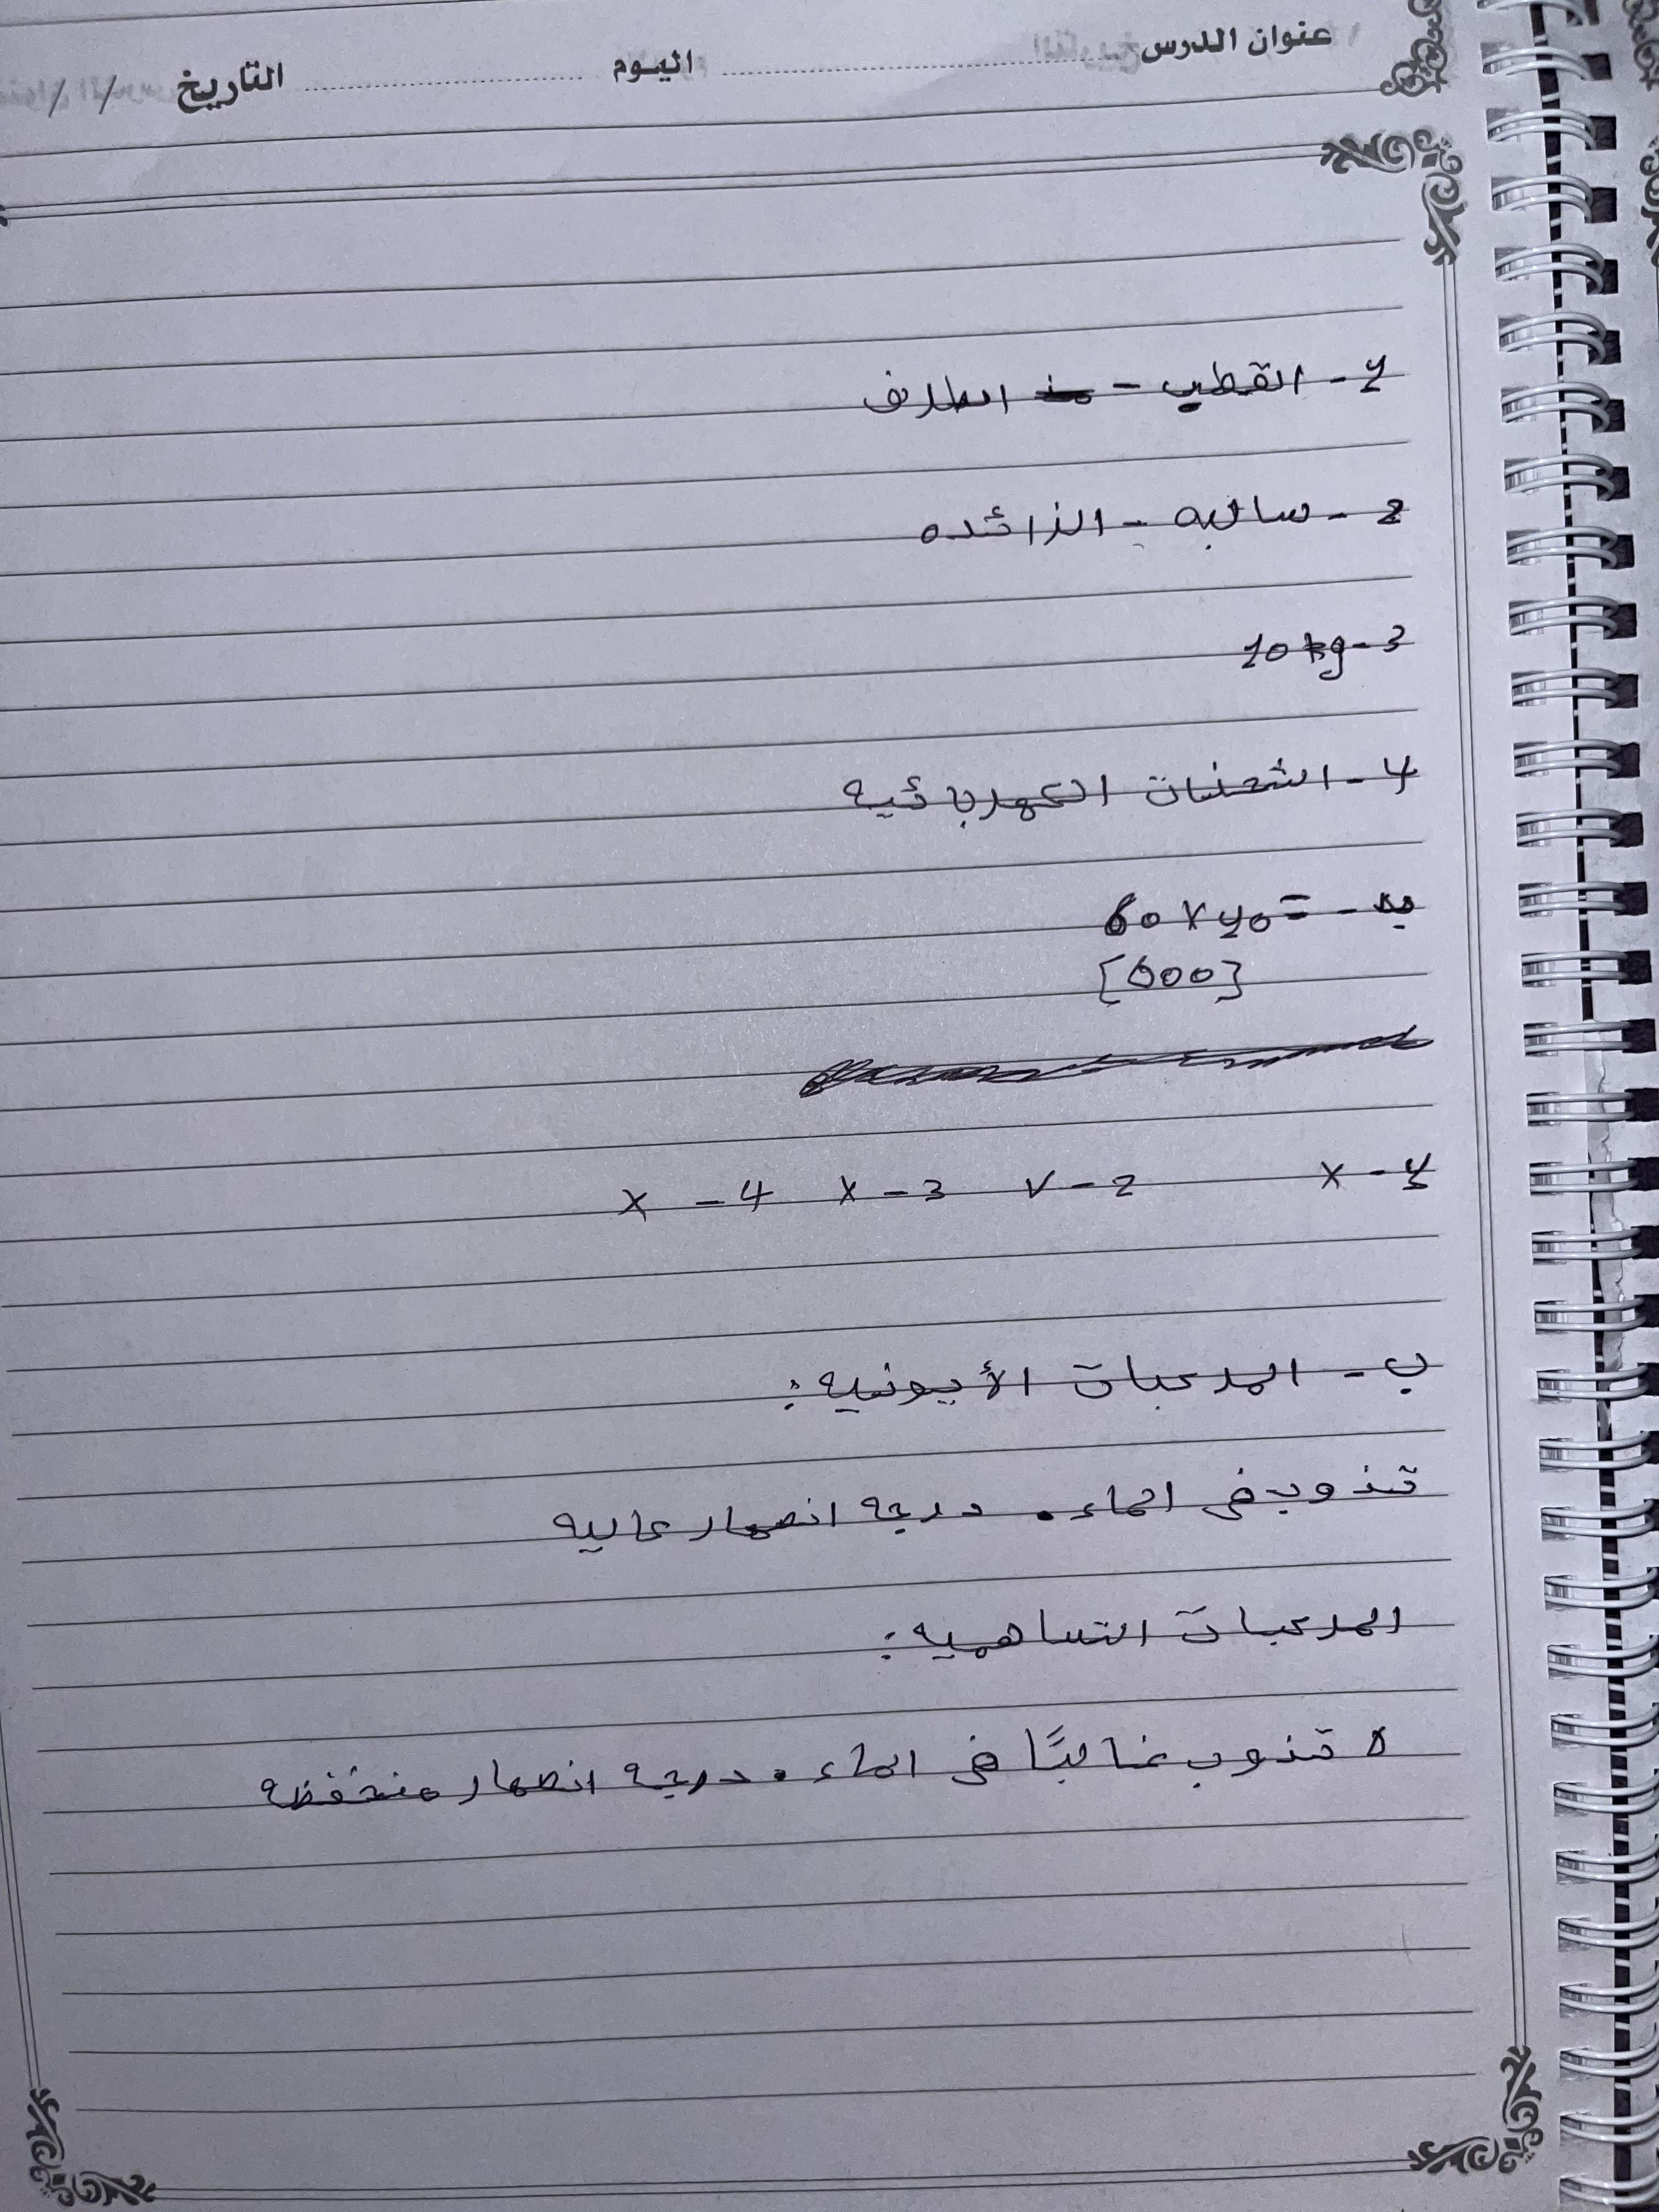 عنوان الدرس اليوم التاريخ / /
1- القطبي - الطارف
2- سالبه - الزائده
3- 10 kg
4- الشحنات الكهربائيه
60 x 10 =
[600]
1- x 2- ✓ 3- x 4- x
ب- المركبات الأيونيه:
تذوب في الماء. درجه انصهار عاليه
المركبات التساهميه:
لا تذوب غالبًا في الماء. درجه انصهار منخفضه